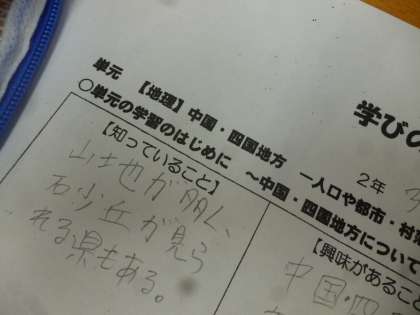 学びの
2年
単元 【地理】中国・四国地方 ー人口や都市・村
○単元の学習のはじめに ～中国・四国地方について
【知っていること】
山地が多く、
砂丘が見ら
れる県もある。
【興味があること
中国・四